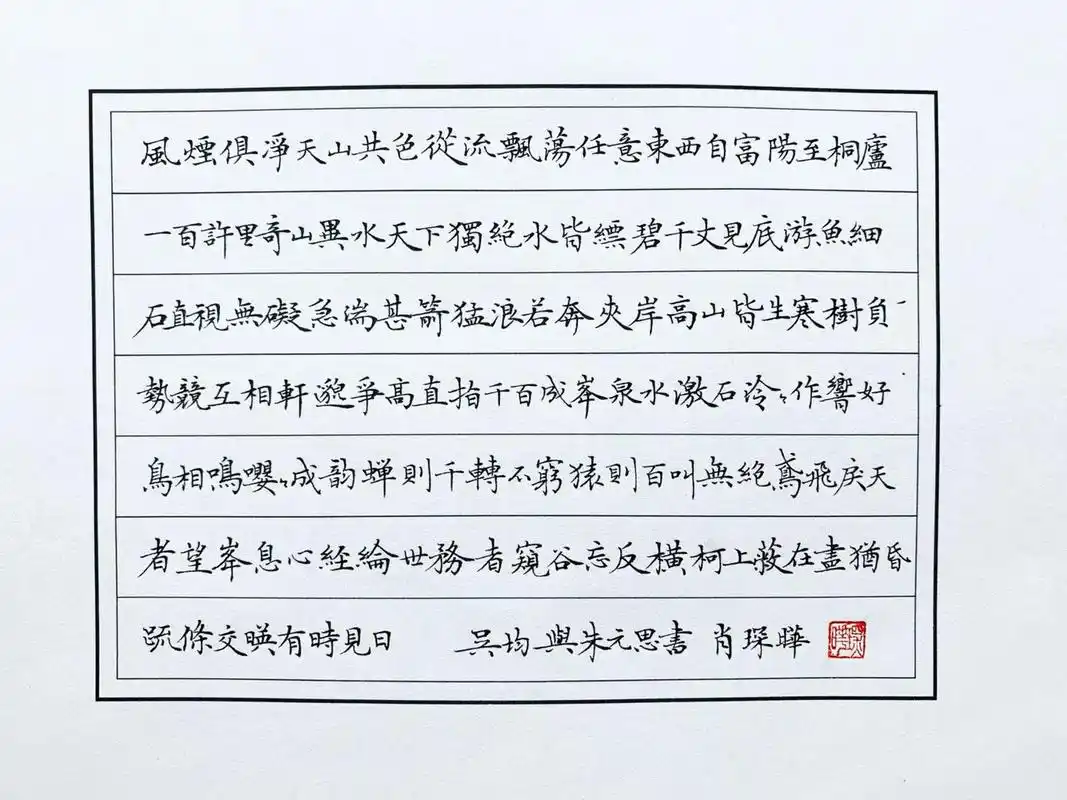 風煙俱淨天山共色從流飄蕩任意東西自富陽至桐廬
一百許里奇山異水天下獨絕水皆縹碧千丈見底游魚細
石直視無礙急湍甚箭猛浪若奔夾岸高山皆生寒樹負
勢競互相軒邈爭高直指千百成峯泉水激石泠〻作響好
鳥相鳴嚶〻成韵蝉則千轉不窮猿則百叫無絕鳶飛戾天
者望峯息心經綸世務者窺谷忘反橫柯上蔽在晝猶昏
疏條交暎有時見日 吴均與朱元思書 肖琛曄